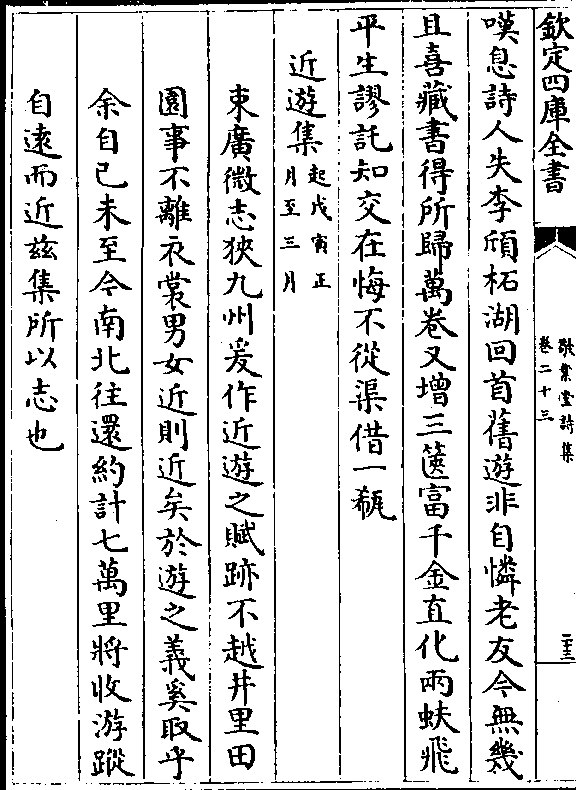 欽定四庫全書
敬業堂詩集
卷二十三
二十三
嘆息詩人失李頎柘湖回首舊遊非自憐老友今無幾
且喜藏書得所歸萬卷又增三篋富千金直化兩蚨飛
平生謬託知交在悔不從渠借一瓻
近遊集起戊寅正
月至三月
束廣微志狹九州爰作近遊之賦跡不越井里田
園事不離衣裳男女近則近矣於遊之義奚取乎
余自己未至今南北往還約計七萬里將收游蹤
自遠而近兹集所以志也